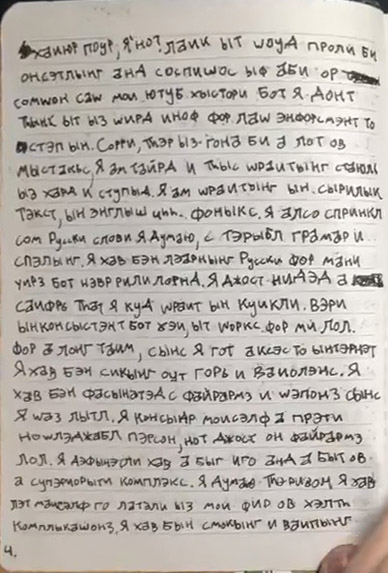 хаиюр поур, я нот лаик ыт шоуд проли би
онсэтлынг анд соспишос ыф аби ор
сомшон саш мои ютуб хыстори бот я донт
тынк ыт ыз шира иноф фор лаш энфорсмэнт то
стэп ын. Сорри, тhэр ыз гона би а лот ов
мыстакьс, я ам тайрд и тhыс шраитынг стаюл
ыз хард и ступыд. Я ам шраитынг ын сырилык
тэкст, ын энглыш шит. фоныкс. Я алсо спринкл
сом русски слови я думаю, с тэрыбл грамар и
спэлынг. Я хав бэн лэарнынг русски фор мани
уирз бот нэвр рили лорнд. Я джост нидэд а
саифрь тhат я куд шраит ын куикли. Вэри
ынконсыстэнт бот хэй, ыт шоркс фор ми лол.
фор а лонг таим, сынс я гот аксэс то ынтэрнэт
я хав бэн сикынг оут горь и ваиолэнс. Я
хав бэн фасынатэд с файрармз и шэпонз сынс
я шаз лытл. Я консыдр моисэлф а прэти
ношлэджабл пэрсон, нот джост он файрармз
лол. Я дэфынэтли хав а быг иго анд а быт ов
а супэриорыти комплэкс. Я думаю тhэ ризон я хав
лэт маисэлф го латэли ыз мои фир ов хэлтh
компликашонз. Я хав бын смокынг и ваипынг
4.